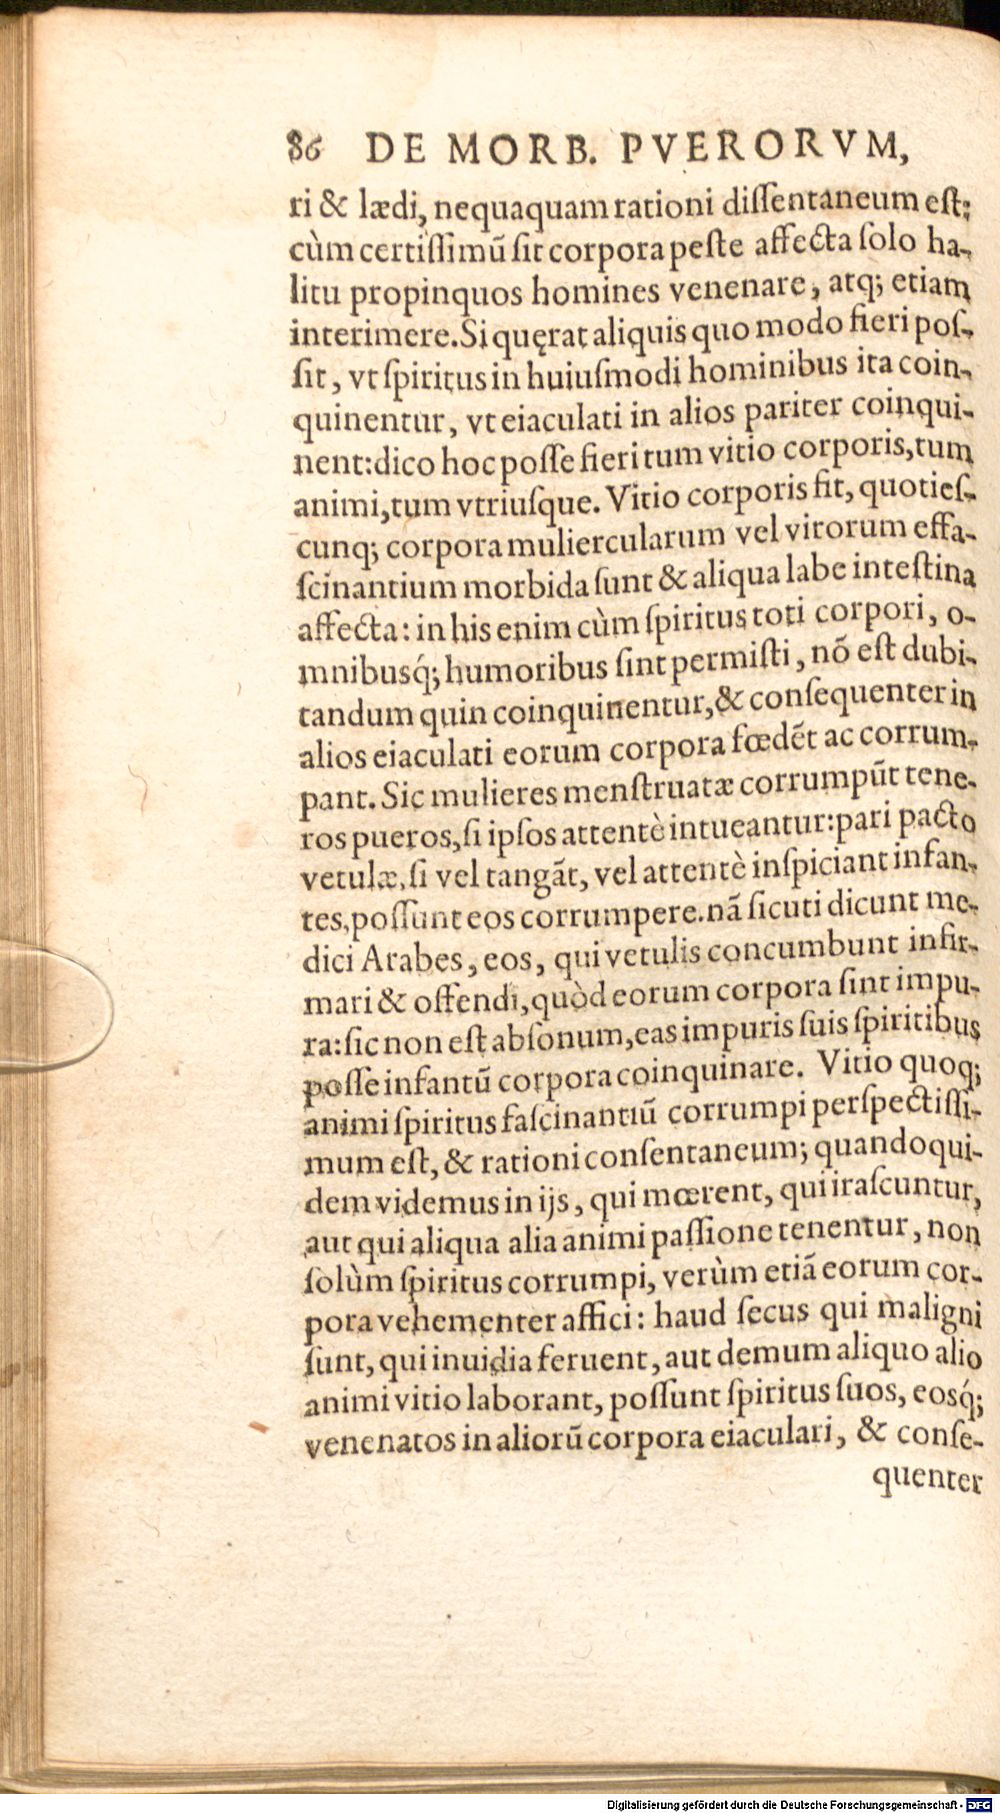 86 DE MORB. PVERORVM,
ri & lædi, nequaquam rationi diſſentaneum eſt:
cùm certiſſimũ ſit corpora peſte affecta ſolo ha-
litu propinquos homines venenare, atq; etiam
interimere. Si quęrat aliquis quo modo fieri poſ-
ſit, vt ſpiritus in huiuſmodi hominibus ita coin-
quinentur, vt eiaculati in alios pariter coinqui-
nent: dico hoc poſſe fieri tum vitio corporis, tum
animi, tum vtriuſque. Vitio corporis fit, quotieſ-
cunq; corpora muliercularum vel virorum effa-
ſcinantium morbida ſunt & aliqua labe inteſtina
affecta: in his enim cùm ſpiritus toti corpori, o-
mnibusq́; humoribus ſint permiſti, nõ eſt dubi-
tandum quin coinquinentur, & conſequenter in
alios eiaculati eorum corpora fœdẽt ac corrum-
pant. Sic mulieres menſtruatæ corrumpũt tene-
ros pueros, ſi ipſos attentè intueantur: pari pacto
vetulæ, ſi vel tangãt, vel attentè inſpiciant infan-
tes, poſſunt eos corrumpere. nã ſicuti dicunt me-
dici Arabes, eos, qui vetulis concumbunt infir-
mari & offendi, quòd eorum corpora ſint impu-
ra: ſic non eſt abſonum, eas impuris ſuis ſpiritibus
poſſe infantũ corpora coinquinare. Vitio quoq;
animi ſpiritus faſcinantiũ corrumpi perſpectiſſi-
mum eſt, & rationi conſentaneum; quandoqui-
dem videmus in ijs, qui mœrent, qui iraſcuntur,
aut qui aliqua alia animi paſſione tenentur, non
ſolùm ſpiritus corrumpi, verùm etiã eorum cor-
pora vehementer affici: haud ſecus qui maligni
ſunt, qui inuidia feruent, aut demum aliquo alio
animi vitio laborant, poſſunt ſpiritus ſuos, eosq́;
venenatos in aliorũ corpora eiaculari, & conſe-
quenter
Digitalisierung gefördert durch die Deutsche Forschungsgemeinschaft - DFG